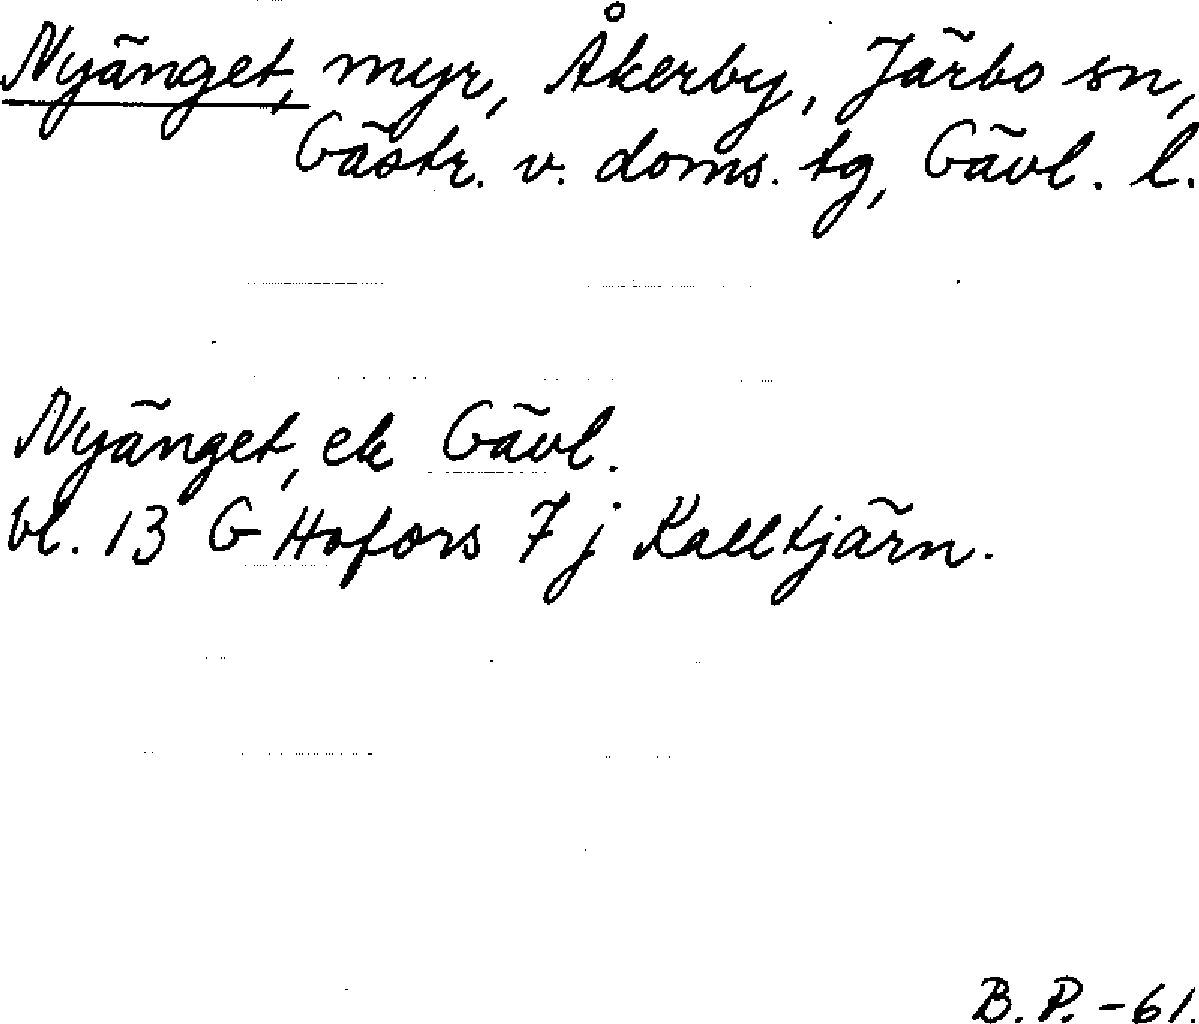 Nyänget, myr, Åkerby, Järbo sn,
Gästr. v. doms. tg, Gävl. l.
Nyänget, ek Gävl.
bl. 13 G Hofors 7 j Kalltjärn.
B. P. -61.